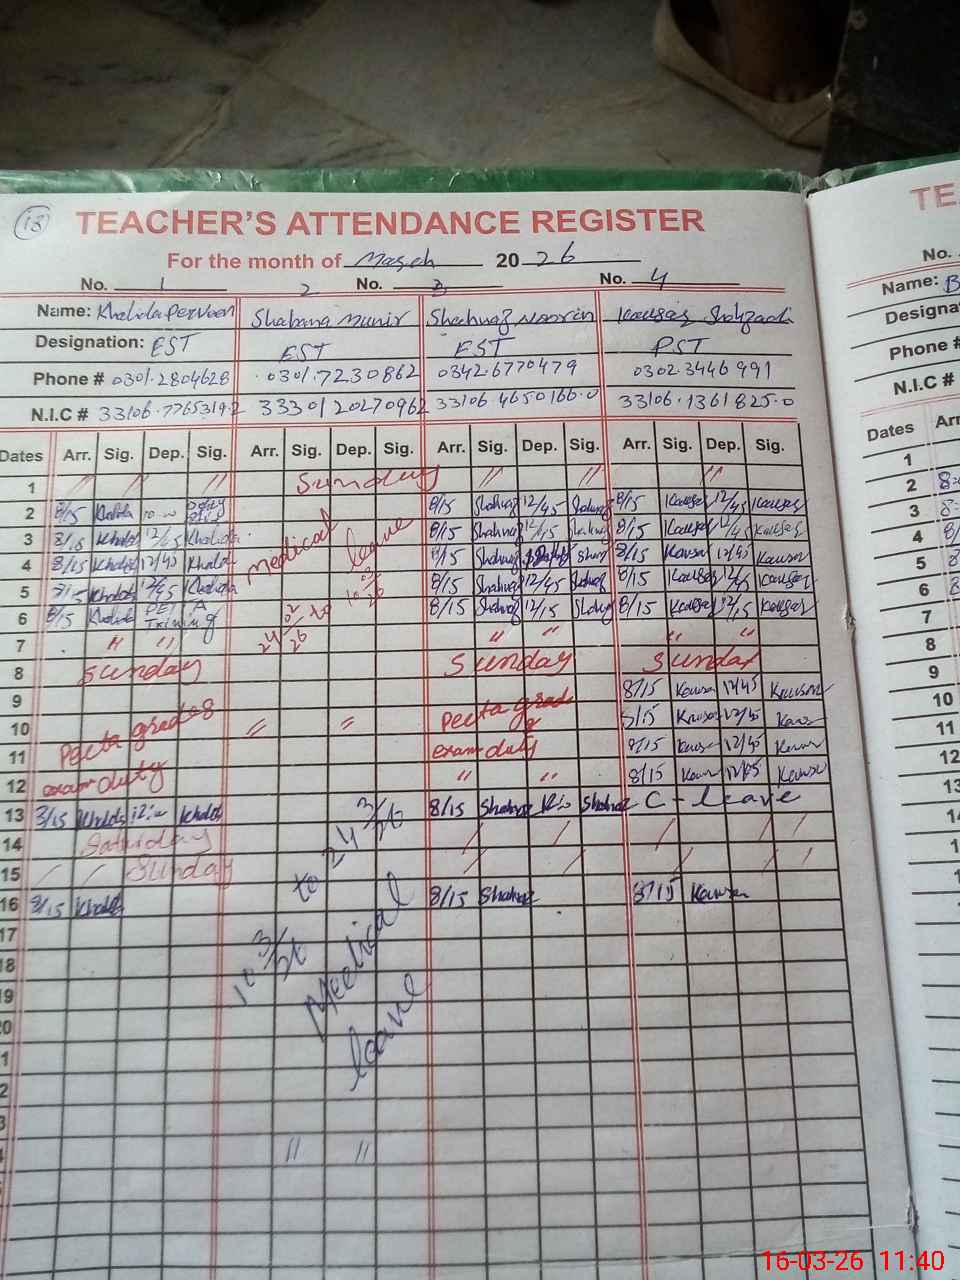 13
TEACHER'S ATTENDANCE REGISTER
TE
For the month of March 20 26
No. 1 2 No. 3 No. 4
No.
Name: Khalida Perveen Shabana Munir Shahnaz Nasrin Kausar Shahzadi
Name: B
Designation: EST EST EST PST
Designa
Phone # 0301.2804628 0301.7230862 0342.6770479 0302.3446991
Phone #
N.I.C # 33106.7765319.2 33301 20270962 33106.4650166.0 33106.1361825.0
N.I.C #
Dates Arr. Sig. Dep. Sig. Arr. Sig. Dep. Sig. Arr. Sig. Dep. Sig. Arr. Sig. Dep. Sig.
Dates Arr
1 " " " Sunday " " " "
2 8/15 Khalida 8/15 Shahnaz 12/45 Shahnaz 8/15 Kausar 12/45 Kausar
3 8/15 Khalida 12/45 Khalida 8/15 Shahnaz 12/45 Shahnaz 8/15 Kausar 12/45 Kausar
4 8/15 Khalida 12/45 Khalida 8/15 Shahnaz 8/15 Kausar 12/45 Kausar
5 8/15 Khalida 12/45 Khalida 8/15 Shahnaz 12/45 Shahnaz 8/15 Kausar 12/45 Kausar
6 8/15 Khalida 8/15 Shahnaz 12/15 Shahnaz 8/15 Kausar 12/15 Kausar
medical leave
24/02/26 to 10/03/26
7 " " " " " "
8 Sunday Sunday Sunday
9 8/15 Kausar 12/45 Kausar
10 Peeta grade 8 " " Peeta grade 8 8/15 Kausar 12/45 Kausar
11 exam duty 8/15 Kausar 12/45 Kausar
12 exam duty " " 8/15 Kausar 12/45 Kausar
13 8/15 Khalida Khalida 8/15 Shahnaz Shahnaz C-leave
14 Saturday
15 Sunday
16 8/15 Khalida 8/15 Shahnaz 8/15 Kausar
10 3/26 to 24 3/26
Medical leave
17
18
19
20
" "
1
2
3
4
5
6
7
8
9
10
11
12
13
16-03-26 11:40